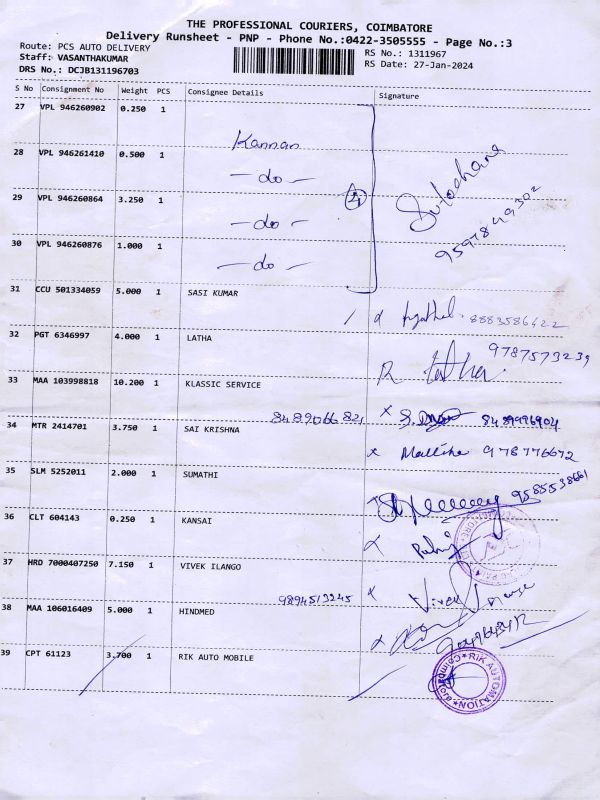 THE PROFESSIONAL COURIERS, COIMBATORE
Delivery Runsheet - PNP - Phone No.:0422-3505555 - Page No.:3
Route: PCS AUTO DELIVERY RS No.: 1311967
Staff: VASANTHAKUMAR RS Date: 27-Jan-2024
DRS No.: DCJB131196703
S No Consignment No Weight PCS Consignee Details Signature
27 VPL 946260902 0.250 1
Kannan
28 VPL 946261410 0.500 1
- do -
29 VPL 946260864 3.250 1
- do -
4
Sulochana
9597849302
30 VPL 946260876 1.000 1
- do -
31 CCU 501334059 5.000 1 SASI KUMAR
8883586422
32 PGT 6346997 4.000 1 LATHA
9787573239
Latha
33 MAA 103998818 10.200 1 KLASSIC SERVICE
8489066821 8489996904
34 MTR 2414701 3.750 1 SAI KRISHNA
Mallika 978776672
35 SLM 5252011 2.000 1 SUMATHI
9585538661
36 CLT 604143 0.250 1 KANSAI
37 HRD 7000407250 7.150 1 VIVEK ILANGO
9894513245 Vivek
38 MAA 106016409 5.000 1 HINDMED
39 CPT 61123 3.700 1 RIK AUTO MOBILE
RIK AUTOMATION * Coimbatore *